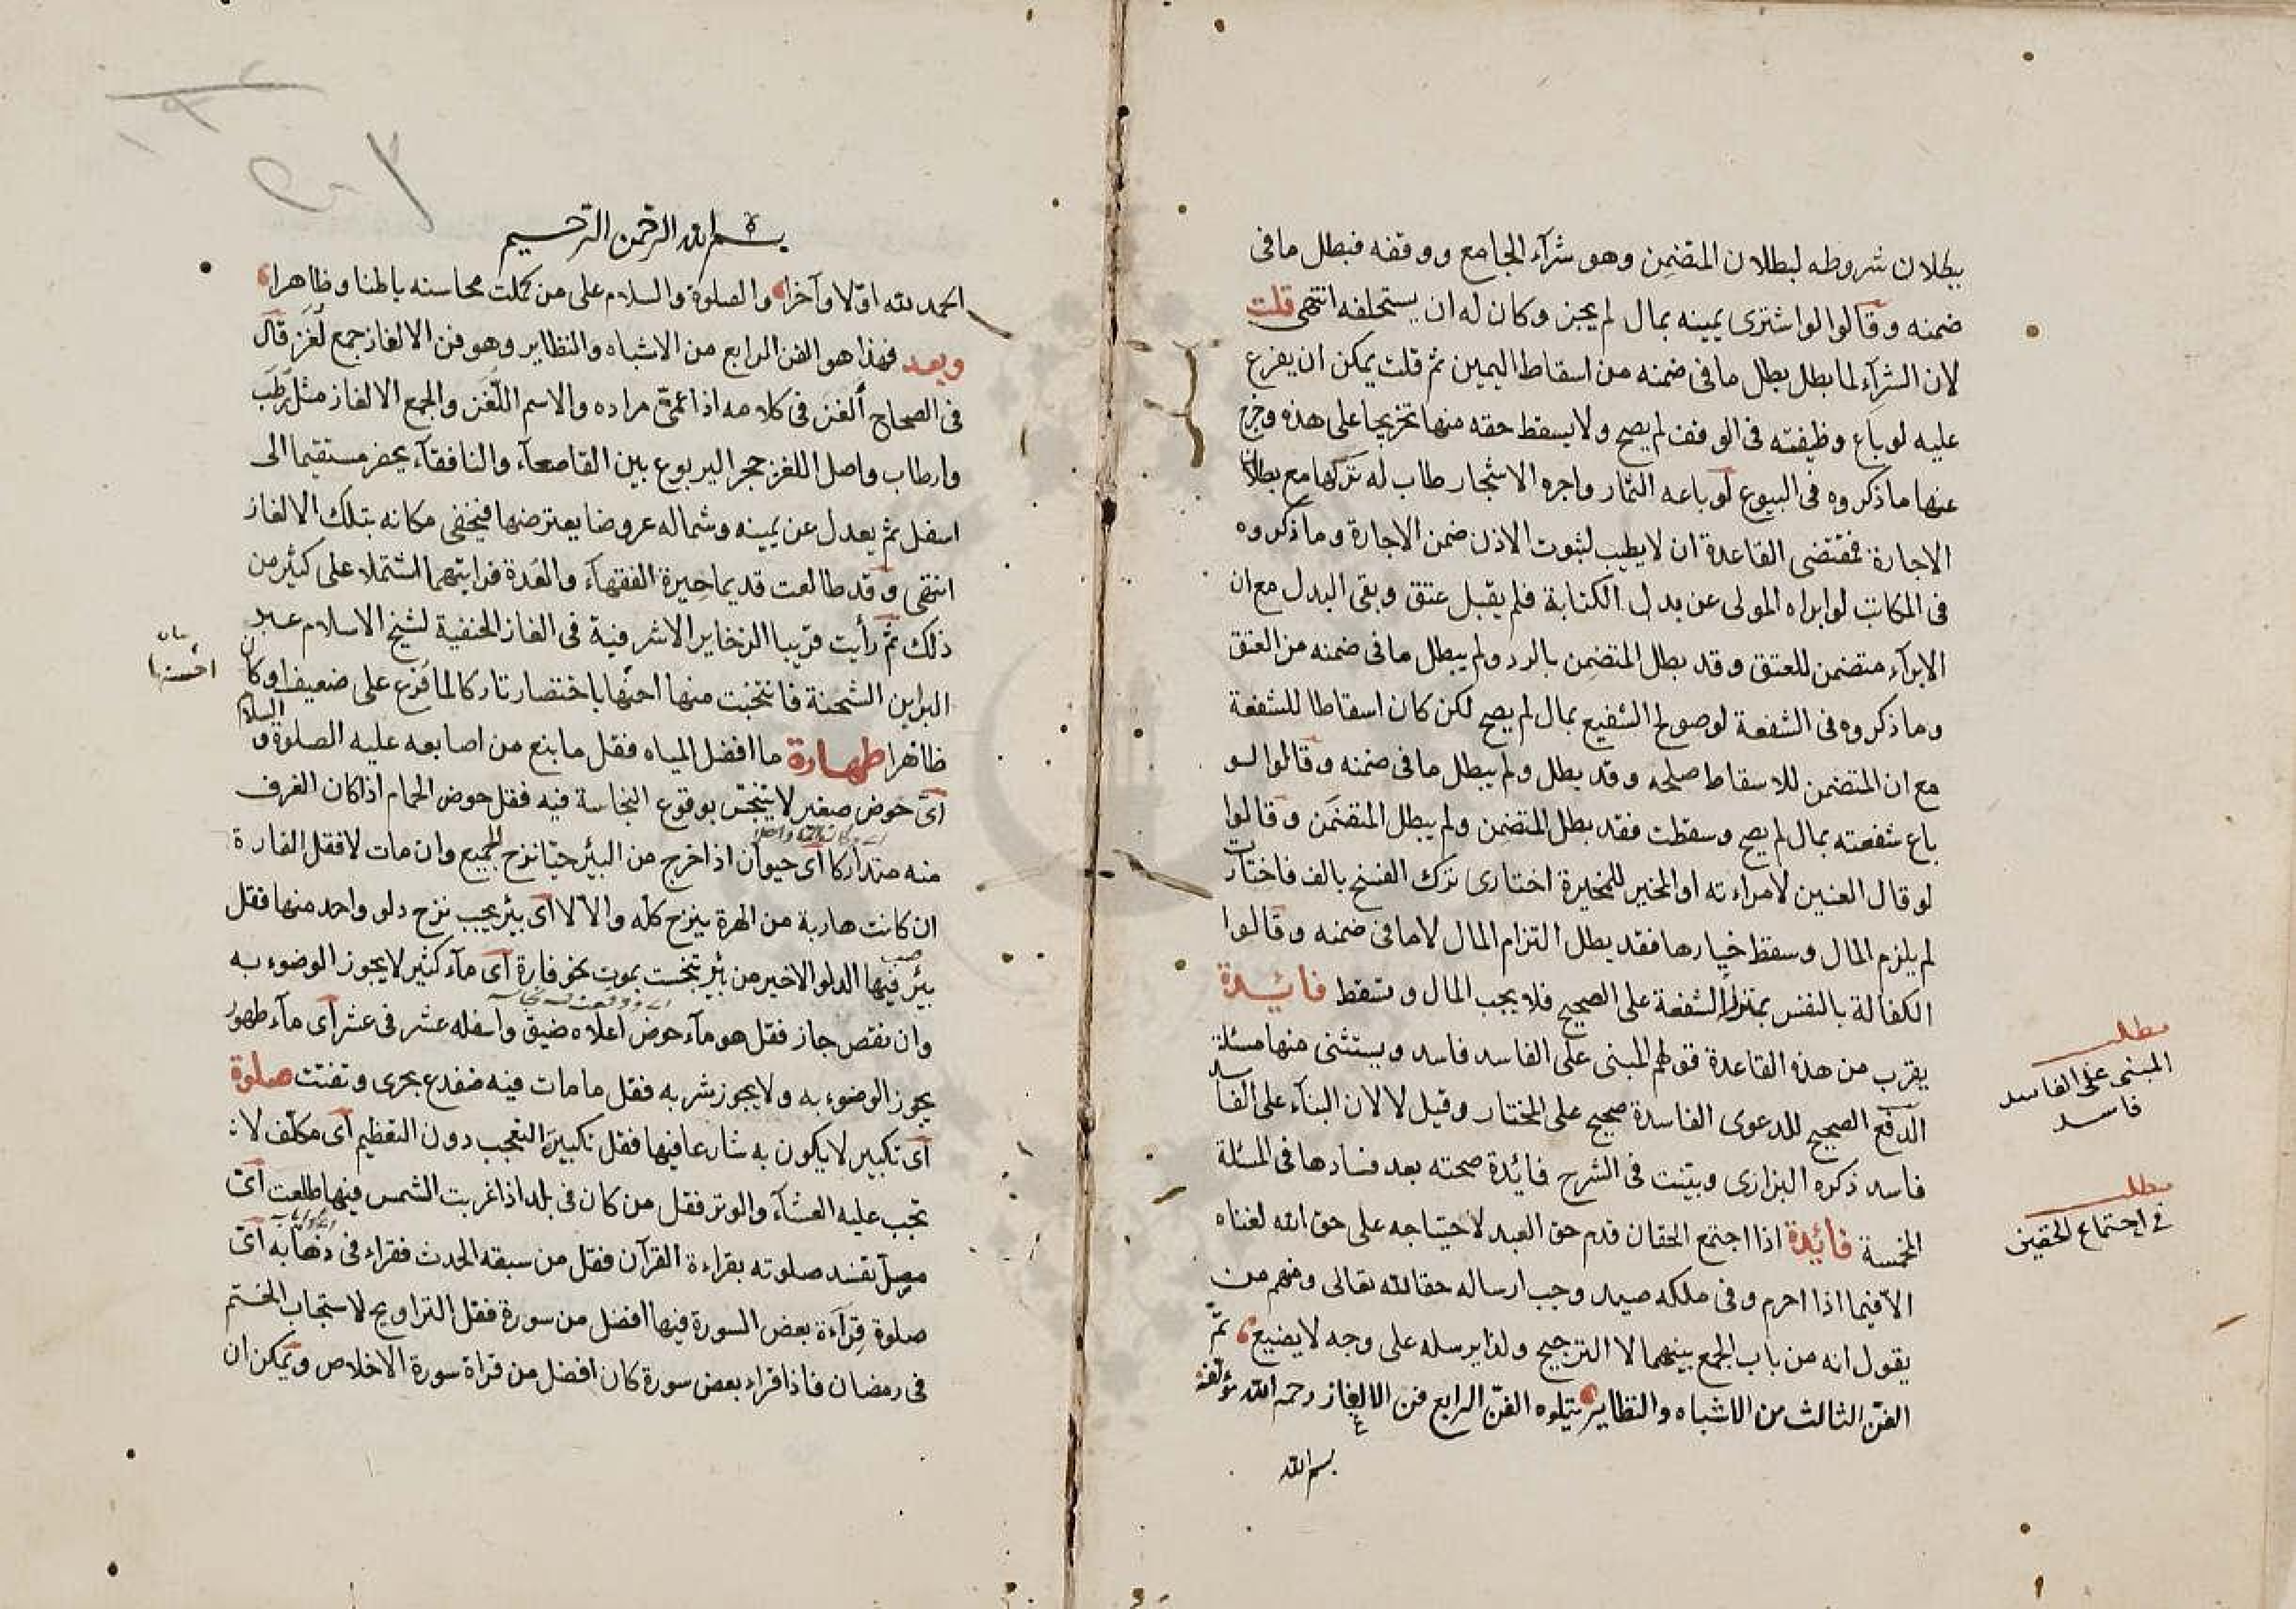 ببطلان شروطه لبطلان المتضمن وهو شرآء الجامع ووقفه فبطل ما فى
ضمنه وقالوا لو اشترى يمينه بمال لم يجز وكان له ان يستحلفه انتهى قلت
لان الشرآء لما بطل بطل ما فى ضمنه من اسقاط اليمين ثم قلت يمكن ان يفرع
عليه لو باع وظيفته فى الوقف لم يصح ولا يسقط حقه منها تخريجا على هذه وخرج
عنها ما ذكروه فى البيوع لو باعه الثمار واجره الاشجار طاب له تركها مع بطلان
الاجارة فمقتضى القاعدة ان لا يطيب لثبوت الاذن ضمن الاجارة وما ذكروه
فى المكاتب لو ابراه المولى عن بدل الكتابة فلم يقبل عتق وبقى البدل مع ان
الابرآء متضمن للعتق وقد بطل المتضمن بالرد ولم يبطل ما فى ضمنه من العتق
وما ذكروه فى الشفعة لو صولح الشفيع بمال لم يصح لكن كان اسقاطا للشفعة
مع ان المتضمن للاسقاط صلحه وقد بطل ولم يبطل ما فى ضمنه وقالوا لو
باع شفعته بمال لم يصح وسقطت فقد بطل المتضمن ولم يبطل المتضمن وقالوا
لو قال العنين لامراءته او المخير للمخيرة اختارى ترك الفسخ بالف فاختارت
لم يلزم المال وسقط خيارها فقد بطل التزام المال لا ما فى ضمنه وقالوا
الكفالة بالنفس بمنزلة الشفعة على الصحيح فلا يجب المال وتسقط فائدة
يقرب من هذه القاعدة قولهم المبنى على الفاسد فاسد ويستثنى منها مسئلة
الدفع الصحيح للدعوى الفاسدة صحيح على المختار وقيل لا لان البنآء على الفاسد
فاسد ذكره البزازى وبينت فى الشرح فائدة صحته بعد فسادها فى المسئلة
المخمسة فائدة اذا اجتمع الحقان قدم حق العبد لاحتياجه على حق الله لغناه
الا فيما اذا احرم وفى ملكه صيد وجب ارساله حقا لله تعالى ومنهم من
يقول انه من باب الجمع بينهما لا الترجيح ولذا يرسله على وجه لا يضيع تمّ
الفنّ الثالث من الاشباه والنظاير يتلوه الفنّ الرابع فن الالغاز رحم الله مؤلفه
بسم الله
مطلب
المبنى على الفاسد
فاسد
مطلب
فى اجتماع الحقين
بسم الله الرحمن الرحيم
الحمد لله اوّلا وآخرا والصلوة والسلام على من كملت محاسنه باطنا وظاهرا
وبعد فهذا هو الفن الرابع من الاشباه والنظاير وهو فن الالغاز جمع لغز قال
فى الصحاح ألغز فى كلامه اذا عمّى مراده والاسم اللغز والجمع الالغاز مثل رطب
وارطاب واصل اللغز حجر اليربوع بين القاصعآء والنافقآء يحفر مستقيما الى
اسفل ثم يعدل عن يمينه وشماله عروضا يعترضها فيخفى مكانه بتلك الالغاز
انتهى وقد طالعت قديما حيرة الفقهآء والعدة فرايتهما اشتملا على كثير من
ذلك ثم رأيت قريبا الذخاير الاشرفية فى الغاز الحنفية لشيخ الاسلام عبد
البر ابن الشحنة فانتخبت منها احسنها باختصار تاركا لما فرع على ضعيف او كان
ظاهرا طهارة ما افضل المياه فقل ما بنع من اصابعه عليه الصلوة والسلام
اى حوض صغير لا ينجس بوقوع النجاسة فيه فقل حوض الحمام اذا كان الغرف
منه متداركا اى حيوان اذا اخرج من البئر حيّا نزح الجميع وان مات لا فقل الفارة
ان كانت هاربة من الهرة ينزح كله والا لا اى بئر يجب نزح دلو واحد منها فقل
بئر صب فيها الدلو الاخير من بئر تنجست بموت نحو فارة اى مآء كثير لا يجوز الوضوء به
وان نقص جاز فقل هو مآء حوض اعلاه ضيق واسفله عشر فى عشر اى مآء طهور
يجوز الوضوء به ولا يجوز شربه فقل ما مات فيه ضفدع بحرى وتفتت صلوة
اى تكبير لا يكون به شارعا فيها فقل تكبيرة التعجب دون التعظيم اى مكلّف لا
تجب عليه العشآء والوتر فقل من كان فى بلد اذا غربت الشمس فيها طلعت اىّ
مصلّ تفسد صلوته بقراءة القرآن فقل من سبقه الحدث فقراء فى ذهابه اىّ
صلوة قرآءة بعض السورة فيها افضل من سورة فقل التراويح لاستحباب الختم
فى رمضان فاذا قراء بعض سورة كان افضل من قراة سورة الاخلاص ويمكن ان
احسنها